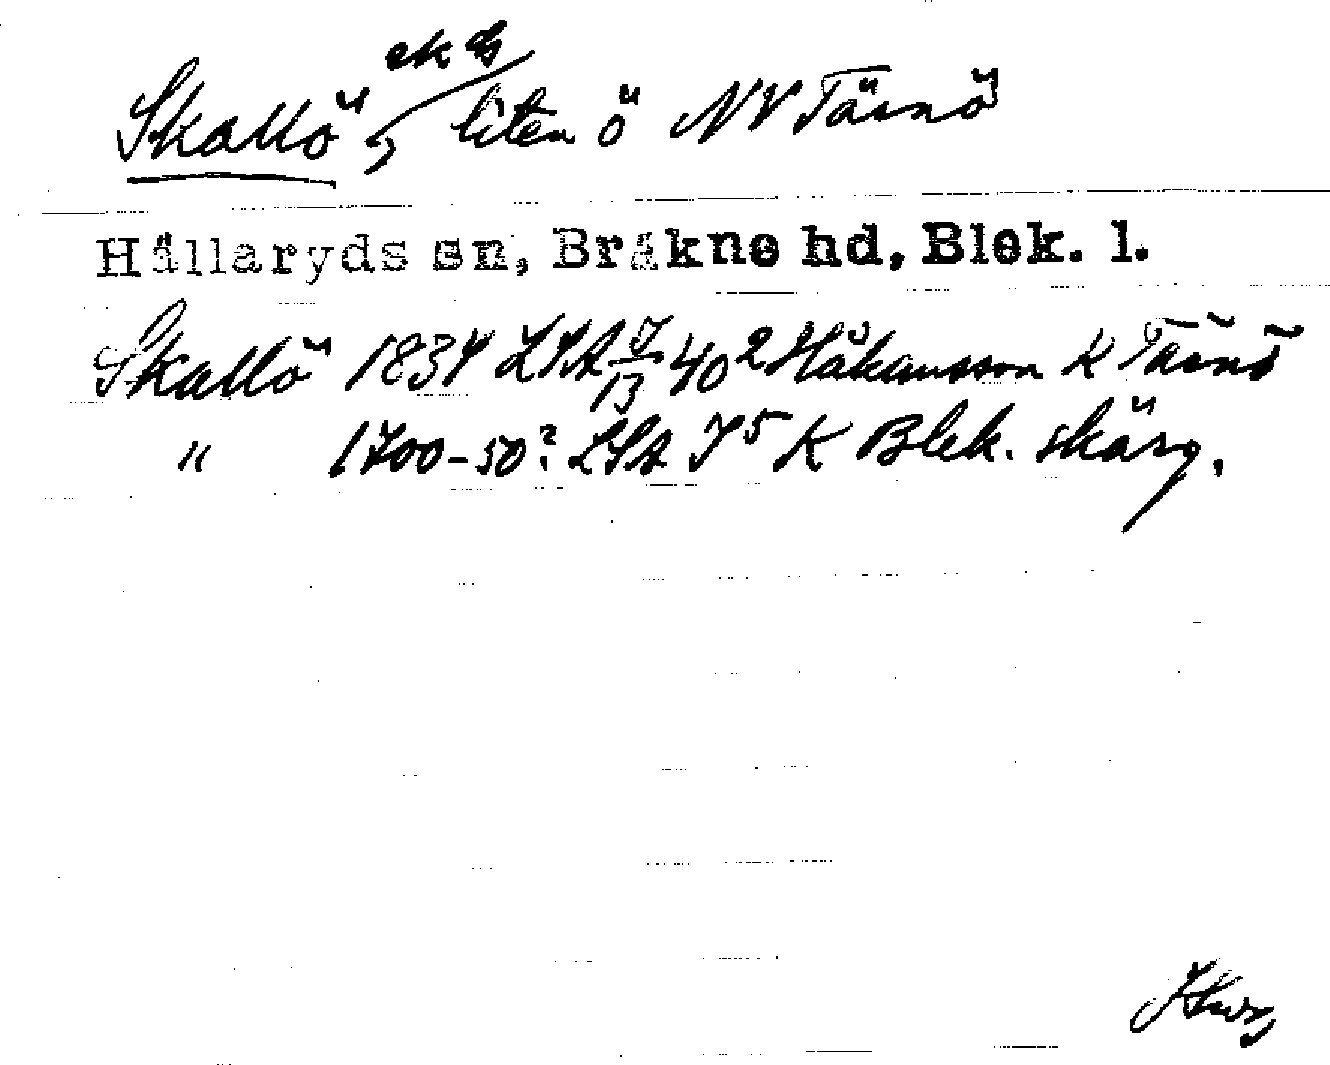 ek bl
Skallö, liten ö NV Tärnö
Hällaryds sn, Bräkne hd, Blek. l.
Skallö 1834 LSA J/13 40² Håkansson K Tärnö
" 1700-50? LSA J⁵ K Blek. skärg.